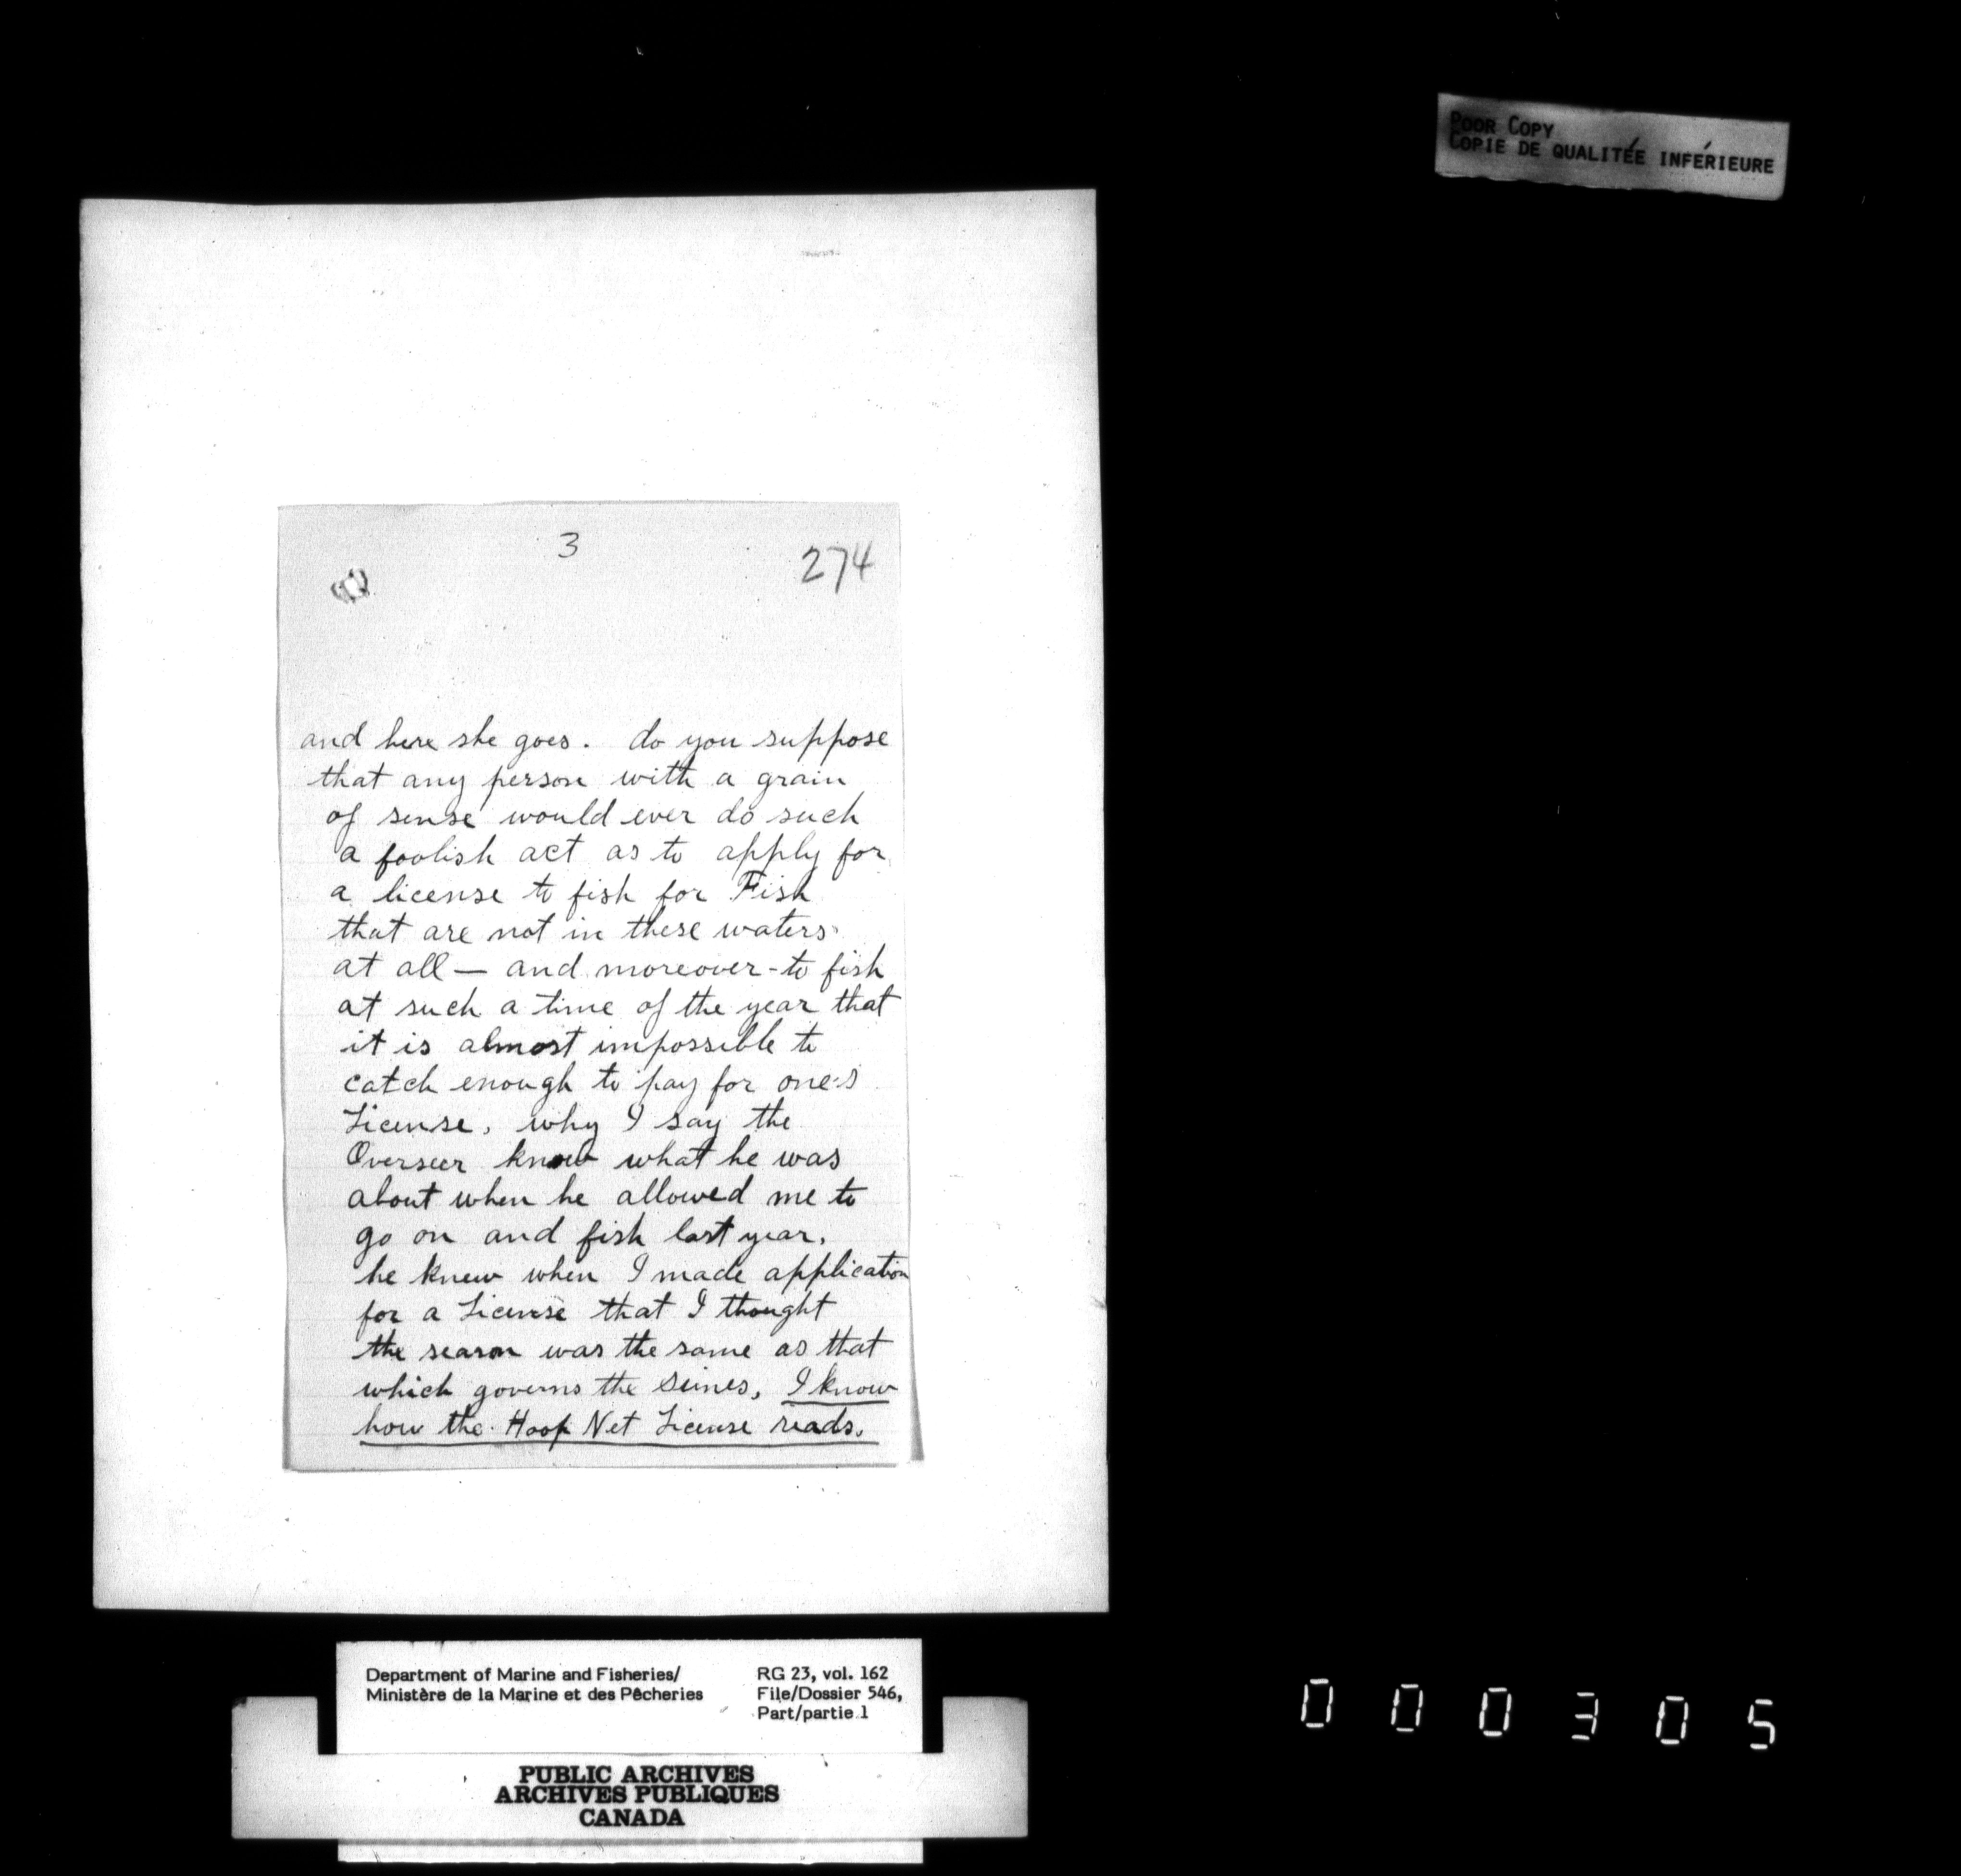 POOR COPY
COPIE DE QUALITÉE INFÉRIEURE
3
274
and here she goes. do you suppose
that any person with a grain
of sense would ever do such
a foolish act as to apply for
a license to fish for Fish
that are not in these waters
at all — and moreover - to fish
at such a time of the year that
it is almost impossible to
catch enough to pay for one's
License, why I say the
Overseer knew what he was
about when he allowed me to
go on and fish last year,
he knew when I made application
for a License that I thought
the season was the same as that
which governs the seines, I know
how the Hoop Net License reads.
Department of Marine and Fisheries/
Ministère de la Marine et des Pêcheries
RG 23, vol. 162
File/Dossier 546,
Part/partie 1
PUBLIC ARCHIVES
ARCHIVES PUBLIQUES
CANADA
000305